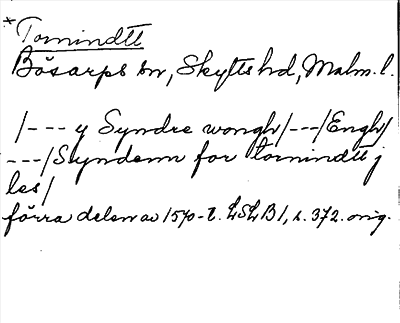 * Tornindtt
Bösarps sn, Skytts hd, Malm. l.
/--- y Syndre wongh/---/Engh/
---/Syndenn for tornindtt j
les/
förra delen av 1570-t. LSLB1, s. 372. orig.